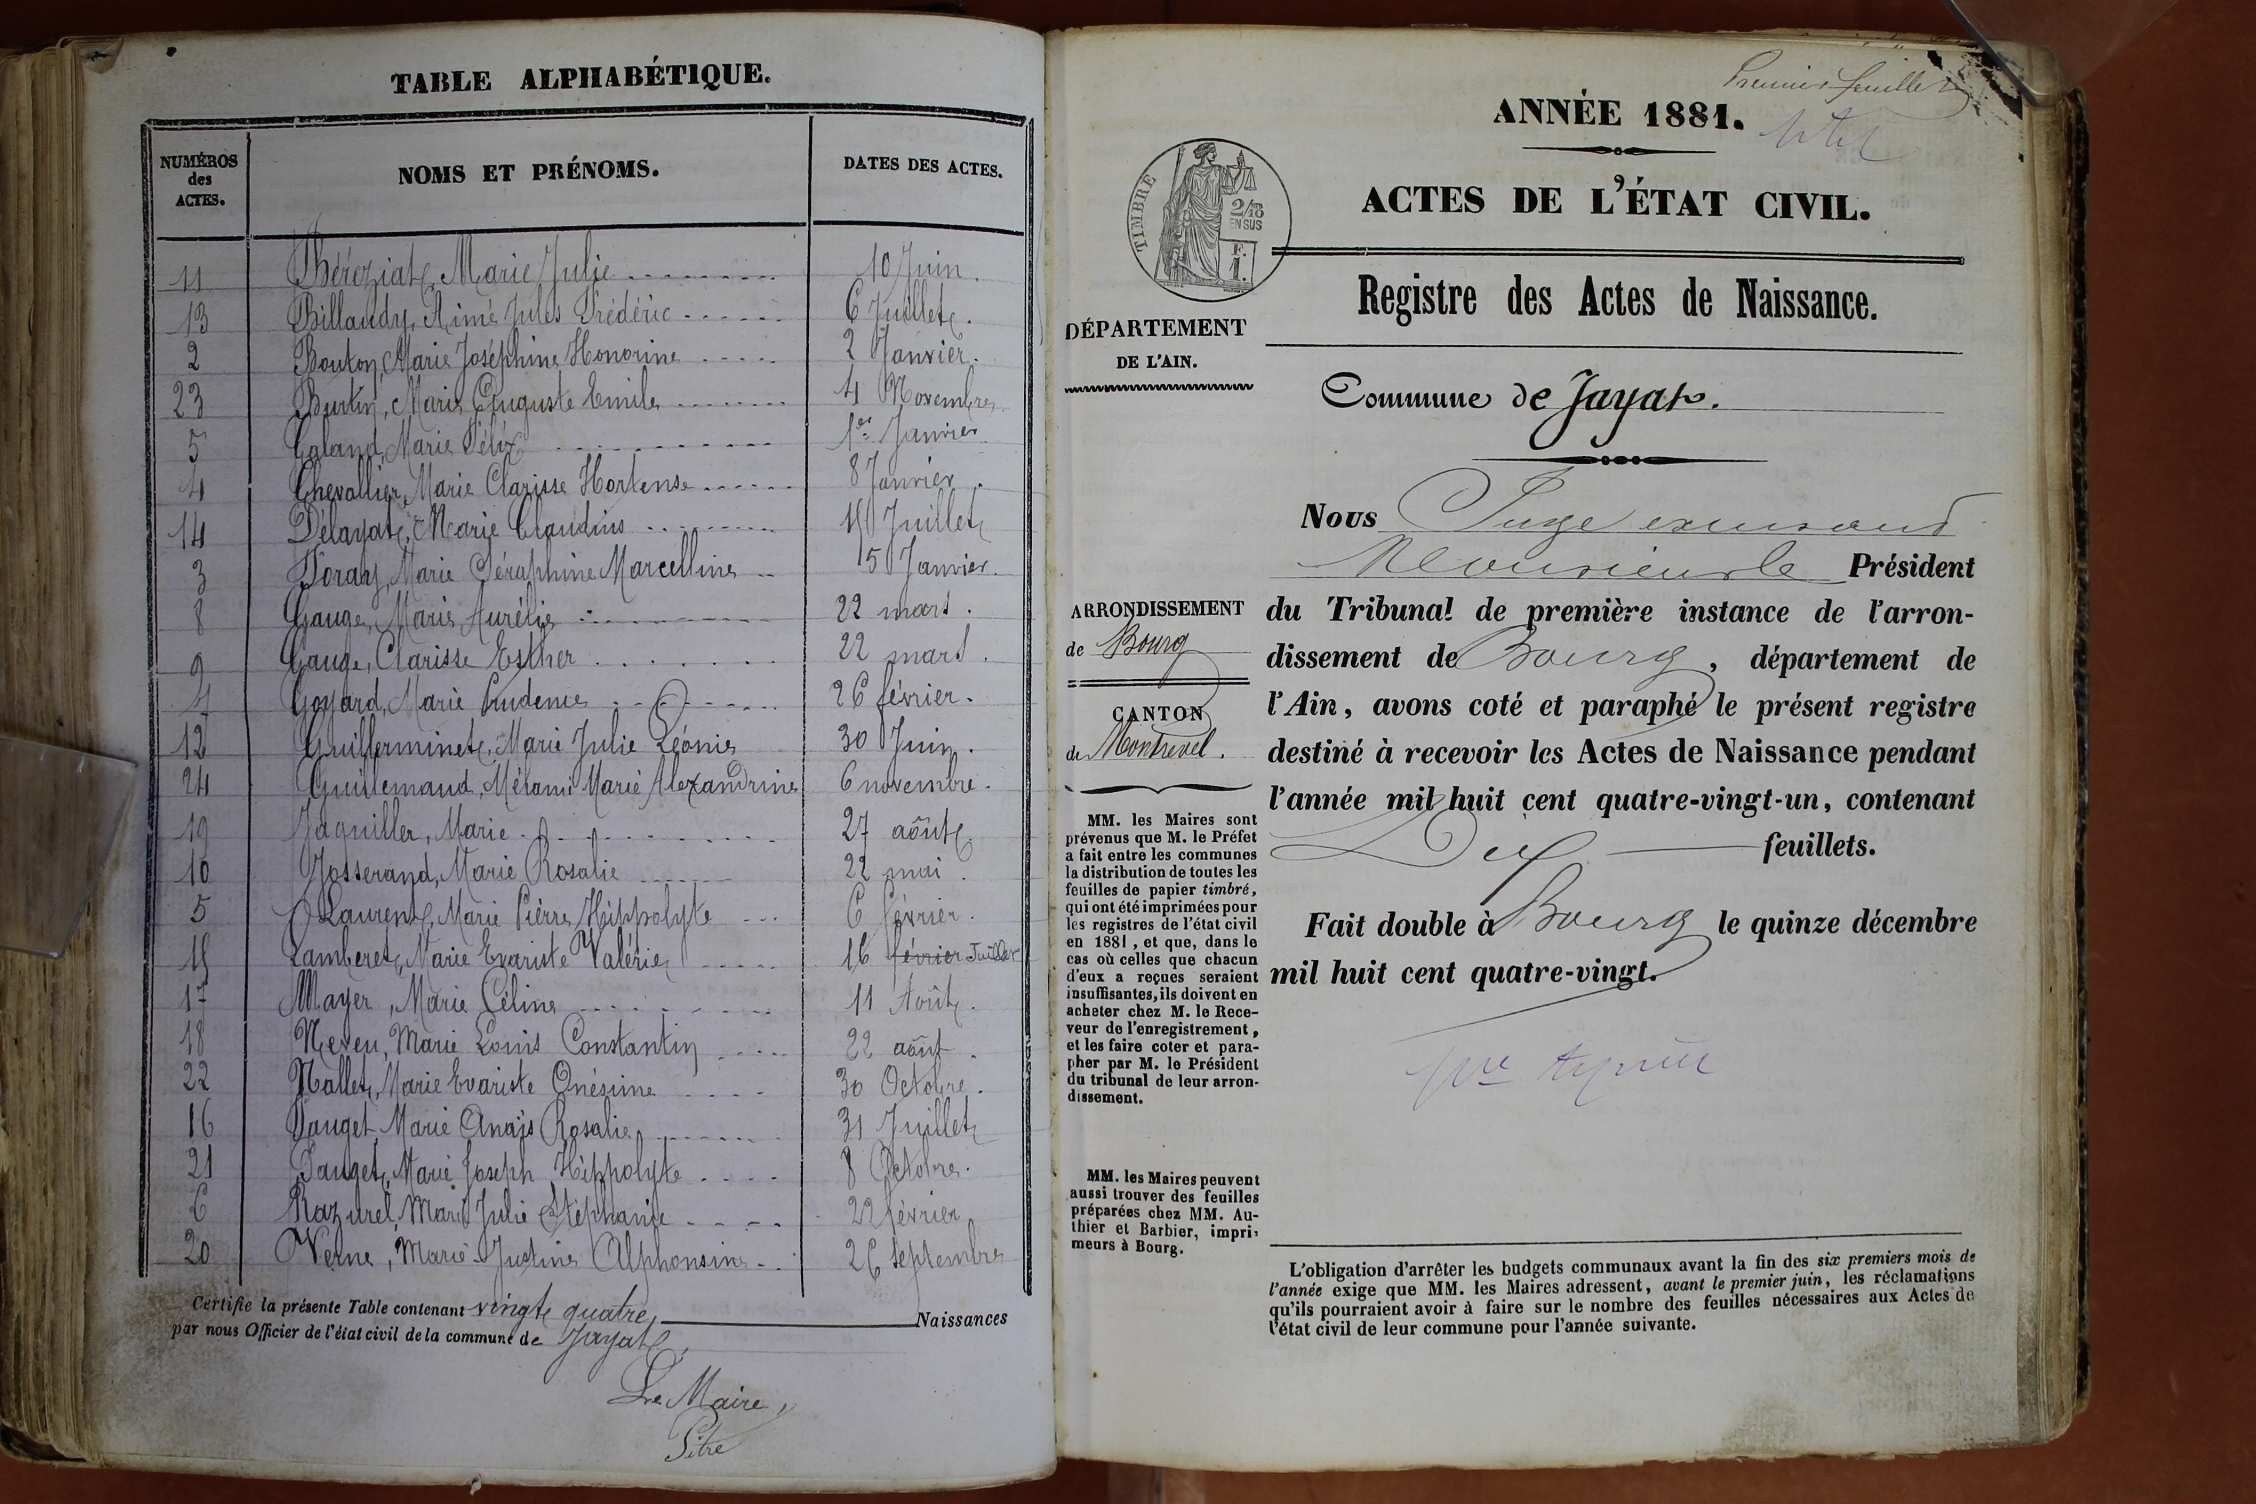 TABLE ALPHABÉTIQUE.
NUMÉROS des ACTES. NOMS ET PRÉNOMS. DATES DES ACTES.
11 Béréziat, Marie Julie 10 Juin.
13 Billaudy, Aimé Jules Frédéric 6 Juillet.
2 Bouton, Marie Joséphine Honorine 2 Janvier.
23 Burtin, Marie Auguste Emile 4 Novembre.
5 Galand, Marie Félix 1er Janvier
4 Chevallier, Marie Clarisse Hortense 8 Janvier.
14 Délayat, Marie Claudius Juillet
3 Marie Séraphine Marcelline 5 Janvier.
8 Gauge, Marie Aurélie 22 mars.
9 Gauge, Clarisse Esther 22 mars.
Goyard, Marie Prudence 26 février.
12 Guillerminet, Marie Julie Léonie 30 Juin.
24 Guillemaud, Mélanie Marie Alexandrine 6 novembre.
19 Jaguiller, Marie 27 août.
10 Josserand, Marie Rosalie 22 mai.
5 Laurent, Marie Pierre Hippolyte 6 février.
15 Lamberet, Marie Evariste Valérie 16 février Juillet
17 Mayer, Marie Céline 11 Août.
18 Neveu, Marie Louis Constantin 22 août.
22 Nallet, Marie Evariste Onésime 30 Octobre.
16 Pauget, Marie Anaïs Rosalie 31 Juillet
21 Pauget, Marie Joseph Hippolyte 8 Octobre.
6 Razurel, Marie Julie Stéphanie 22 février
20 Verne, Marie Justine Alphonsine 26 septembre
Certifié la présente Table contenant vingt quatre Naissances
par nous Officier de l'état civil de la commune de Jayat.
Le Maire,
Pitre
Premier feuillet
ANNÉE 1881.
ACTES DE L'ÉTAT CIVIL.
TIMBRE
2/10 EN SUS
F. 1.
Registre des Actes de Naissance.
DÉPARTEMENT
DE L'AIN.
Commune de Jayat.
Nous Juge
Monsieur le Président
ARRONDISSEMENT
de Bourg
CANTON
de Montrevel.
du Tribunal de première instance de l'arron-
dissement de Bourg, département de
l'Ain, avons coté et paraphé le présent registre
destiné à recevoir les Actes de Naissance pendant
l'année mil huit cent quatre-vingt-un, contenant
Dix feuillets.
Fait double à Bourg le quinze décembre
mil huit cent quatre-vingt.
MM. les Maires sont
prévenus que M. le Préfet
a fait entre les communes
la distribution de toutes les
feuilles de papier timbré,
qui ont été imprimées pour
les registres de l'état civil
en 1881, et que, dans le
cas où celles que chacun
d'eux a reçues seraient
insuffisantes, ils doivent en
acheter chez M. le Rece-
veur de l'enregistrement,
et les faire coter et para-
pher par M. le Président
du tribunal de leur arron-
dissement.
MM. les Maires peuvent
aussi trouver des feuilles
préparées chez MM. Au-
thier et Barbier, impri-
meurs à Bourg.
L'obligation d'arrêter les budgets communaux avant la fin des six premiers mois de
l'année exige que MM. les Maires adressent, avant le premier juin, les réclamations
qu'ils pourraient avoir à faire sur le nombre des feuilles nécessaires aux Actes de
l'état civil de leur commune pour l'année suivante.